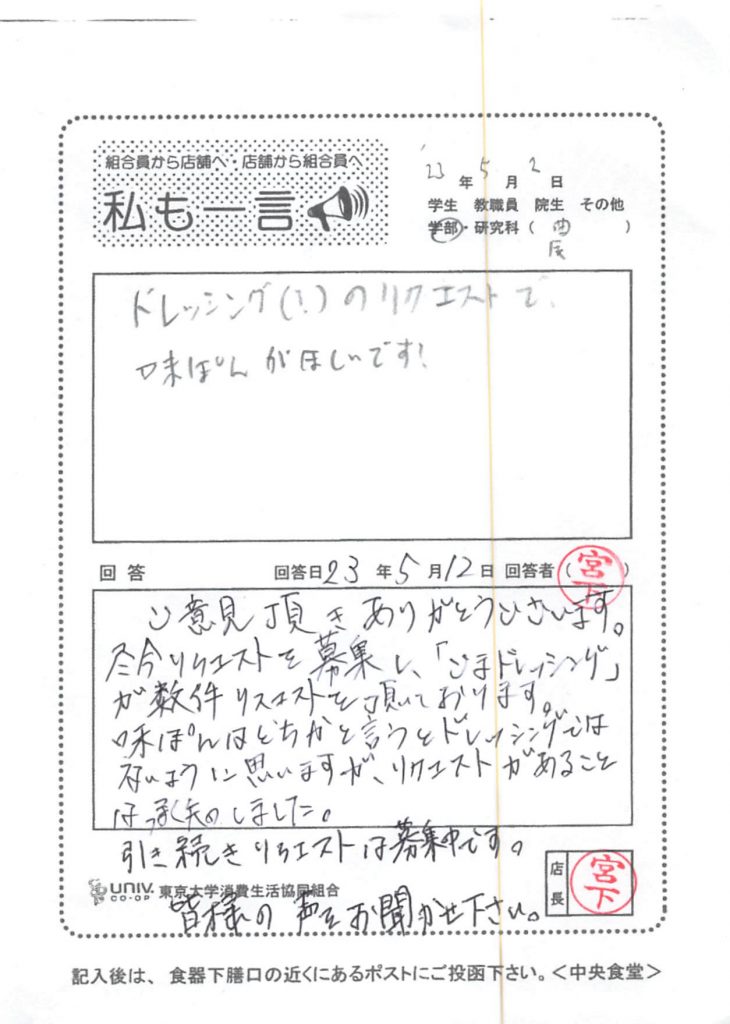 組合員から店舗へ・店舗から組合員へ
私も一言
'23 年 5 月 2 日
学生 教職員 院生 その他
学部・研究科 ( )
ドレッシング(?)のリクエストで、
味ぽんがほしいです!
回答 回答日 23 年 5 月 12 日 回答者 (宮下)
ご意見頂きありがとうございます。
今リクエストを募集し、「ごまドレッシング」
が数件リクエストを頂いております。
味ぽんはどちかと言うとドレッシングでは
ないように思いますが、リクエストがあること
は承知しました。
引き続きリクエストは募集中です。
店長 宮下
UNIV. CO-OP 東京大学消費生活協同組合
皆様の声をお聞かせ下さい。
記入後は、食器下膳口の近くにあるポストにご投函下さい。<中央食堂>